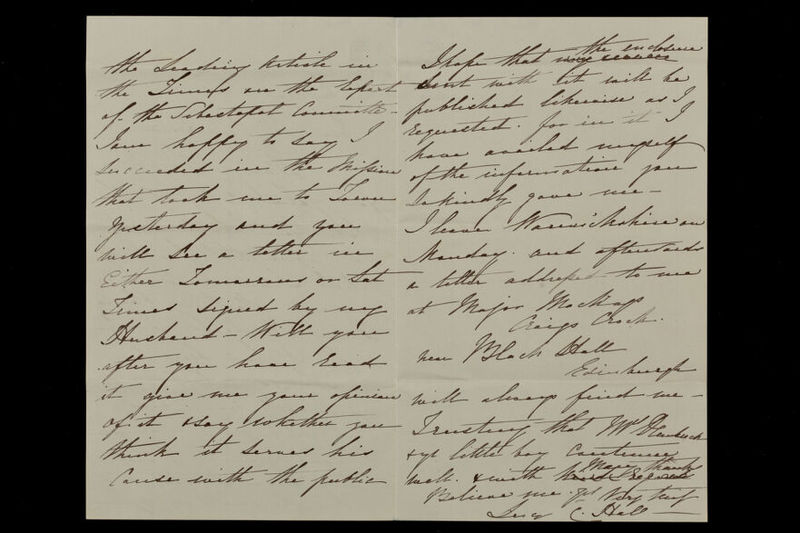 the Leading Article in
the Times on the Report
of the Sebastopol Committee -
I am happy to say I
succeeded in the Mission
that took me to Town
Yesterday and you
will see a letter in
Either Tomorrows or Sat
Times signed by my
Husband - Will you
after you have read
it give me your opinion
of it & say whether you
think it serves his
Cause with the public
I hope that the enclosure
sent with it will be
published likewise as I
requested. for in it I
have availed myself
of the information you
so kindly gave me -
I leave Warwickshire on
Monday. and afterwards
a letter addressed to me
at Major
Craigs Crook.
near Black Hall
Edinburgh
will always find me -
Trusting that Mrs
& yr little boy continue
well. & with Many thanks
Believe me. yrs Very truly
Lucy C. Hall